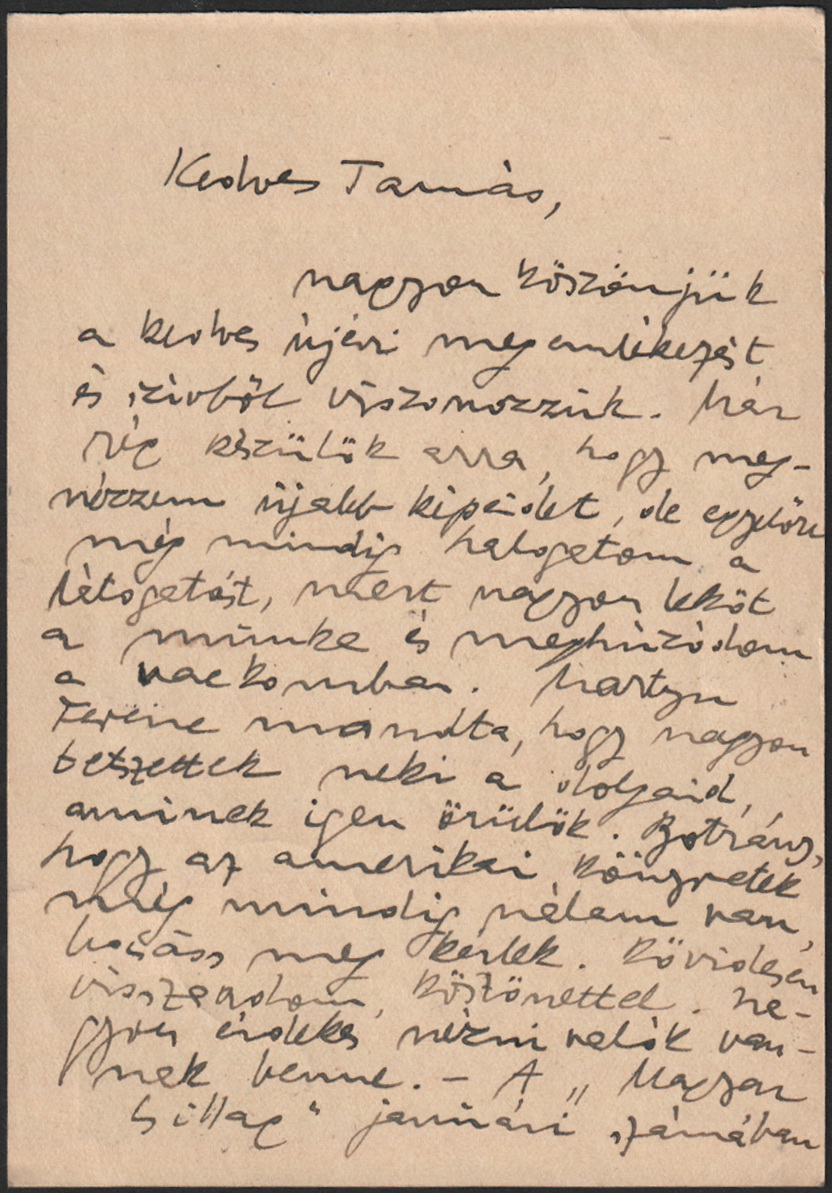 Kedves Tamás,
nagyon köszönjük
a kedves újévi megemlékezést
és szivből viszonozzuk. Már
rég készülök arra, hogy meg-
nézzem újabb képeidet, de egyelőre
még mindig halogatom a
látogatást, mert nagyon leköt
a munka és meghúzódom
a vackomban. Martyn
Ferenc mondta, hogy nagyon
tetszettek neki a dolgaid,
aminek igen örülök. Botrány,
hogy az amerikai könyvetek
még mindig nálam van,
bocsáss meg kérlek. Rövidesen
visszaadom, köszönettel. Na-
gyon érdekes nézni valók van-
nak benne. – A „Magyar
Csillag" januári számában